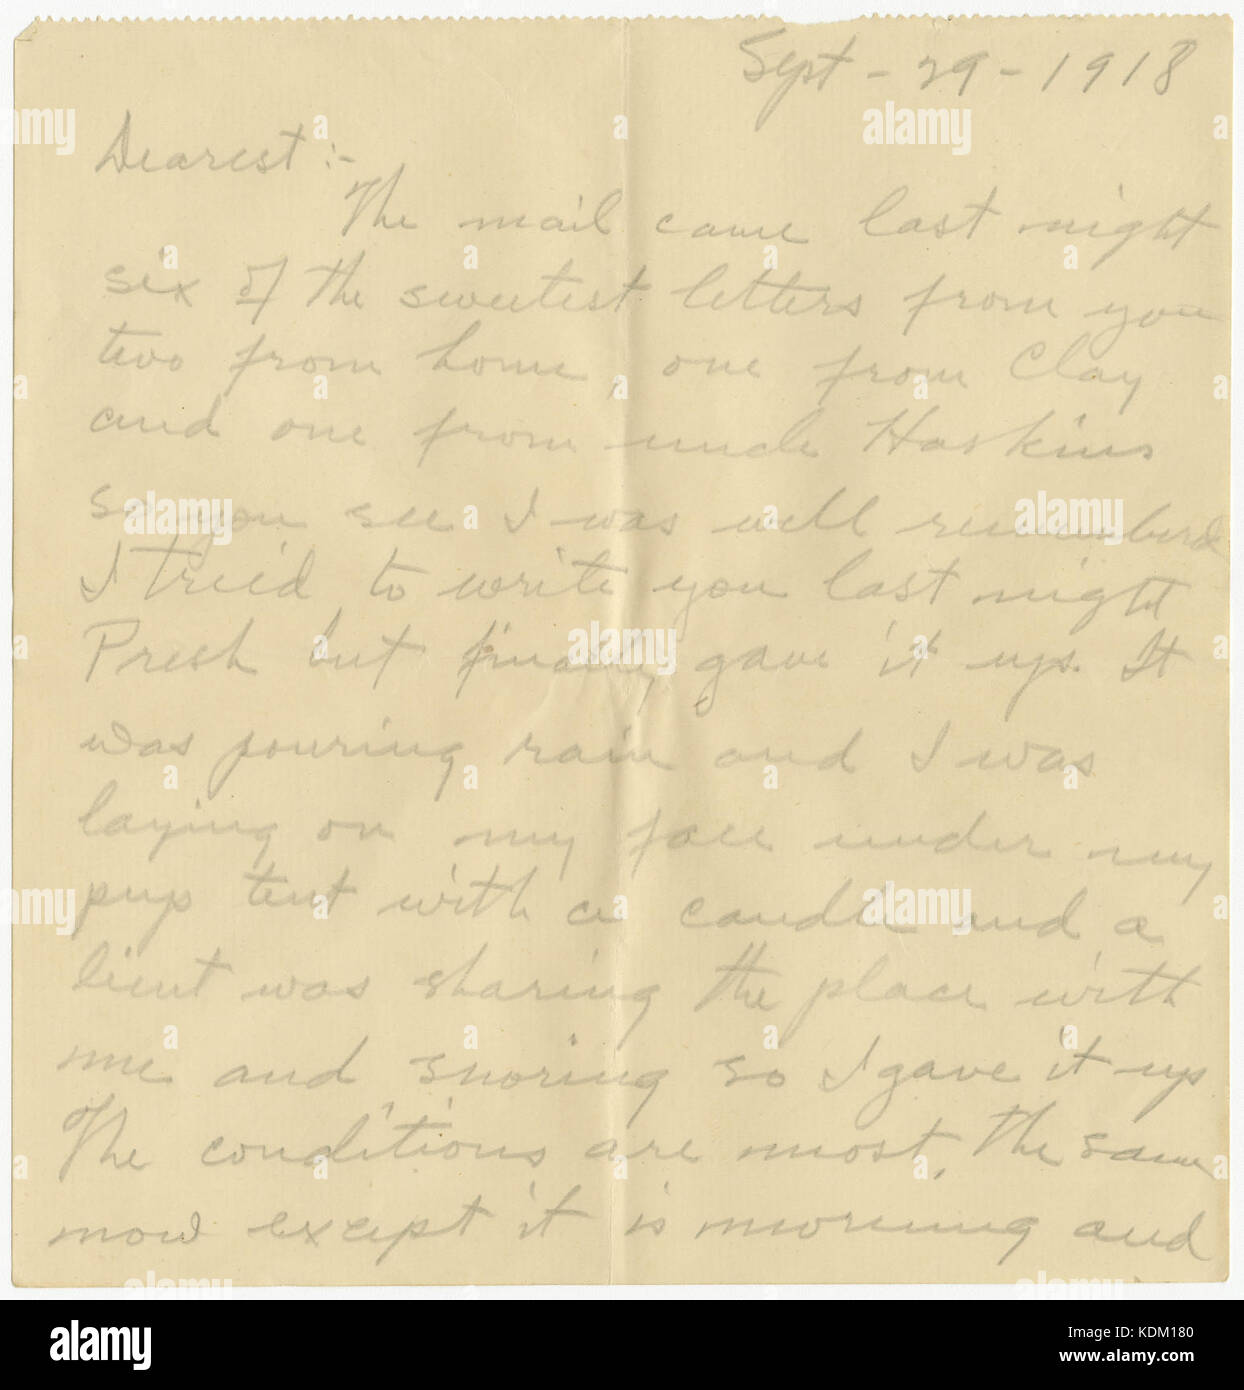 Sept - 29 - 1918
Dearest :-
The mail came last night
six of the sweetest letters from you
two from home, one from Clay
and one from uncle Haskins
so you see I was well rememberd
I tried to write you last night
Presh but finally gave it up. It
was pouring rain and I was
laying on my face under my
pup tent with a candle and a
lieut was sharing the place with
me and snoring so I gave it up
The conditions are most, the same
now except it is morning and
alamy
Image ID: KDM180
www.alamy.com